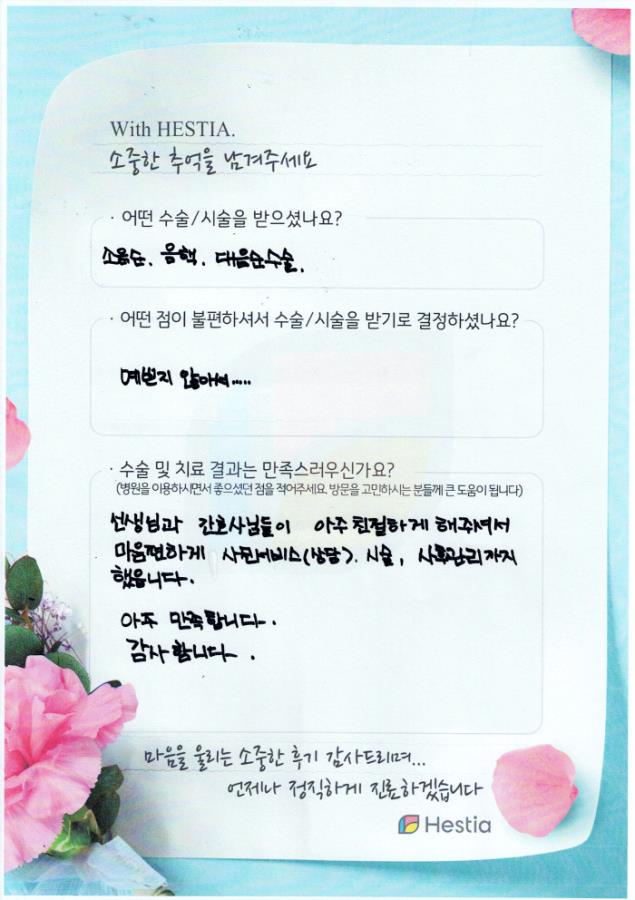 With HESTIA.
소중한 추억을 남겨주세요
· 어떤 수술/시술을 받으셨나요?
소음순. 음핵. 대음순수술.
· 어떤 점이 불편하셔서 수술/시술을 받기로 결정하셨나요?
예쁘지 않아서.....
· 수술 및 치료 결과는 만족스러우신가요?
(병원을 이용하시면서 좋으셨던 점을 적어주세요. 방문을 고민하시는 분들께 큰 도움이 됩니다)
선생님과 간호사님들이 아주 친절하게 해주셔서
마음편하게 사전서비스(상담). 시술, 사후관리까지
했습니다.
아주 만족합니다.
감사합니다.
마음을 울리는 소중한 후기 감사드리며...
언제나 정직하게 진료하겠습니다
Hestia